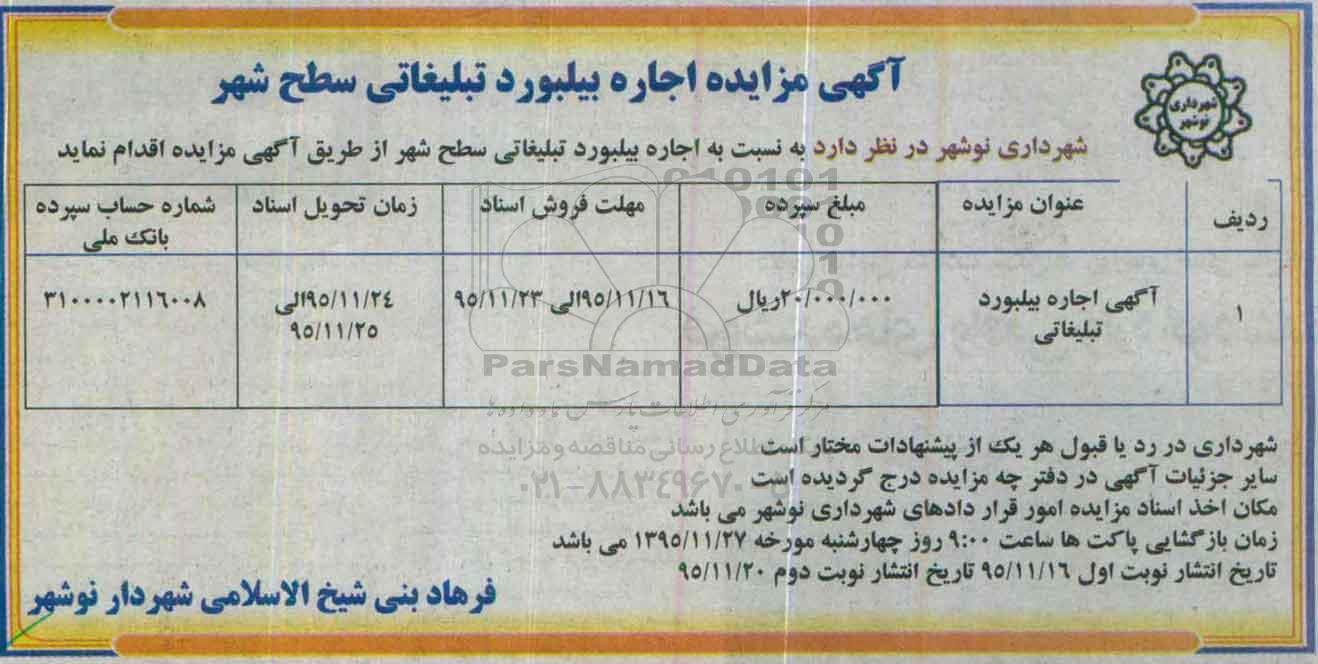 آگهی مزایده اجاره بیلبورد تبلیغاتی سطح شهر
شهرداری
نوشهر
شهرداری نوشهر در نظر دارد به نسبت به اجاره بیلبورد تبلیغاتی سطح شهر از طریق آگهی مزایده اقدام نماید
ردیف
عنوان مزایده
مبلغ سپرده
مهلت فروش اسناد
زمان تحویل اسناد
شماره حساب سپرده
بانک ملی
۱
آگهی اجاره بیلبورد
تبلیغاتی
۲۰/۰۰۰/۰۰۰ریال
۹۵/۱۱/۱۶الی ۹۵/۱۱/۲۳
۹۵/۱۱/۲۴الی
۹۵/۱۱/۲۵
۳۱۰۰۰۰۲۱۱۶۰۰۸
ParsNamadData
شهرداری در رد یا قبول هر یک از پیشنهادات مختار است
سایر جزئیات آگهی در دفتر چه مزایده درج گردیده است
مکان اخذ اسناد مزایده امور قرار دادهای شهرداری نوشهر می باشد
زمان بازگشایی پاکت ها ساعت ۹:۰۰ روز چهارشنبه مورخه ۱۳۹۵/۱۱/۲۷ می باشد
تاریخ انتشار نوبت اول ۹۵/۱۱/۱۶ تاریخ انتشار نوبت دوم ۹۵/۱۱/۲۰
رسانی مناقصه و مزایده
۰۲۱-۸۸۳۴۹۶۷۰
فرهاد بنی شیخ الاسلامی شهردار نوشهر